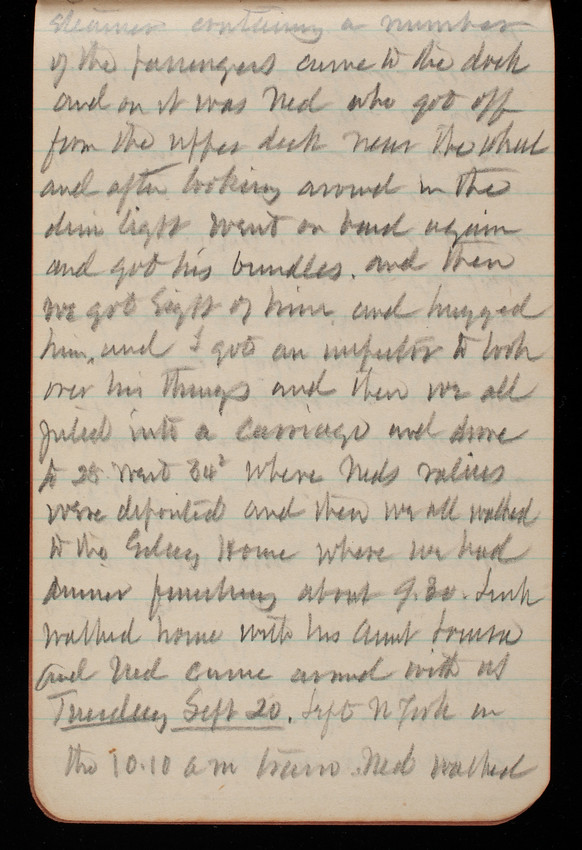 steamer containing a number
of the passengers came to the dock
and on it was Ned who got off
from the upper deck near the wheel
and after looking around in the
dim light went on board again
and got his bundles. and then
we got sight of him, and hugged
him, and I got an inspector to look
over his things and then we all
piled into a carriage and drove
to 28 West 34 where Neds valises
were deposited and then we all walked
to the Gilsey House where we had
dinner finishing about 9.30.
walked home with his Aunt Louisa
and Ned came around with us
Tuesday Sept 20. Left N York in
the 10.10 am train. Ned walked